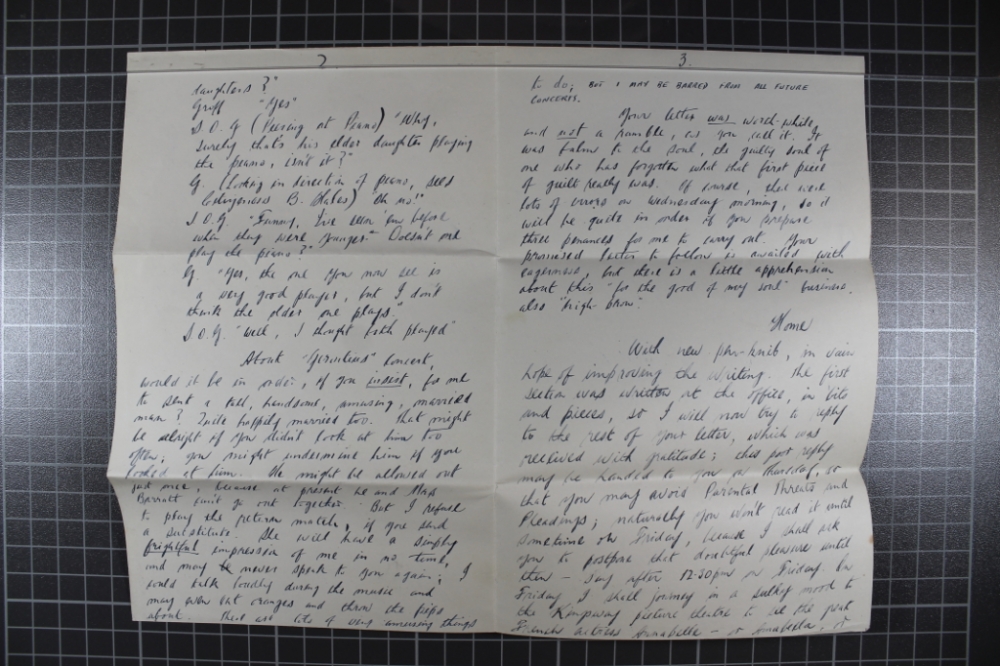 2.
daughters?"
Griff "Yes"
S.O.G (Peering at Piano) "Why,
surely that's his elder daughter playing
the piano, isn't it?"
G. (Looking in direction of piano, sees
B. Hales) Oh no!"
S.O.G. "Funny, I've seen 'em before
when they were younger." Doesn't one
play the piano?"
G "Yes, the one you now see is
a very good player, but I don't
think the older one plays."
S.O.G. "Well, I thought both played"
About "Gerontius" Concert,
would it be in order, if you insist, for me
to send a tall, handsome, amusing, married
man? Quite happily married too. That might
be alright if you didn't look at him too
often; you might undermine him if you
looked at him. He might be allowed out
just once, because at present he and Mrs
Barratt can't go out together. But I refuse
to play the return match, if you send
a substitute. She will have a simply
frightful impression of me in no time,
and may never speak to you again; I
would talk loudly during the music and
may even eat oranges and throw the pips
about. There are lots of very amusing things
3.
to do; BUT I MAY BE BARRED FROM ALL FUTURE
CONCERTS.
Your letter was worth-while,
and not a ramble, as you call it. It
was balm to the soul, the guilty soul of
one who has forgotten what that first piece
of guilt really was. Of course, there were
lots of errors on Wednesday morning, so it
will be quite in order if you prepare
three penances for me to carry out. Your
promised letter to follow is awaited with
eagerness, but there is a little apprehension
about this "for the good of my soul" business,
also "high-brow".
Home
With new pen-knib, in vain
hope of improving the writing. The first
section was written at the office, in bits
and pieces, so I will now try a reply
to the rest of your letter, which was
received with gratitude; this poor reply
may be handed to you on Thursday, so
that you may avoid Parental Threats and
Pleadings; naturally you won't read it until
sometime on Friday, because I shall ask
you to postpone that doubtful pleasure until
then - say after 12.30pm on Friday. On
Friday I shall journey in a sulky mood to
the Kingsway picture theatre to see the great
French actress Annabella - or Arabella, or